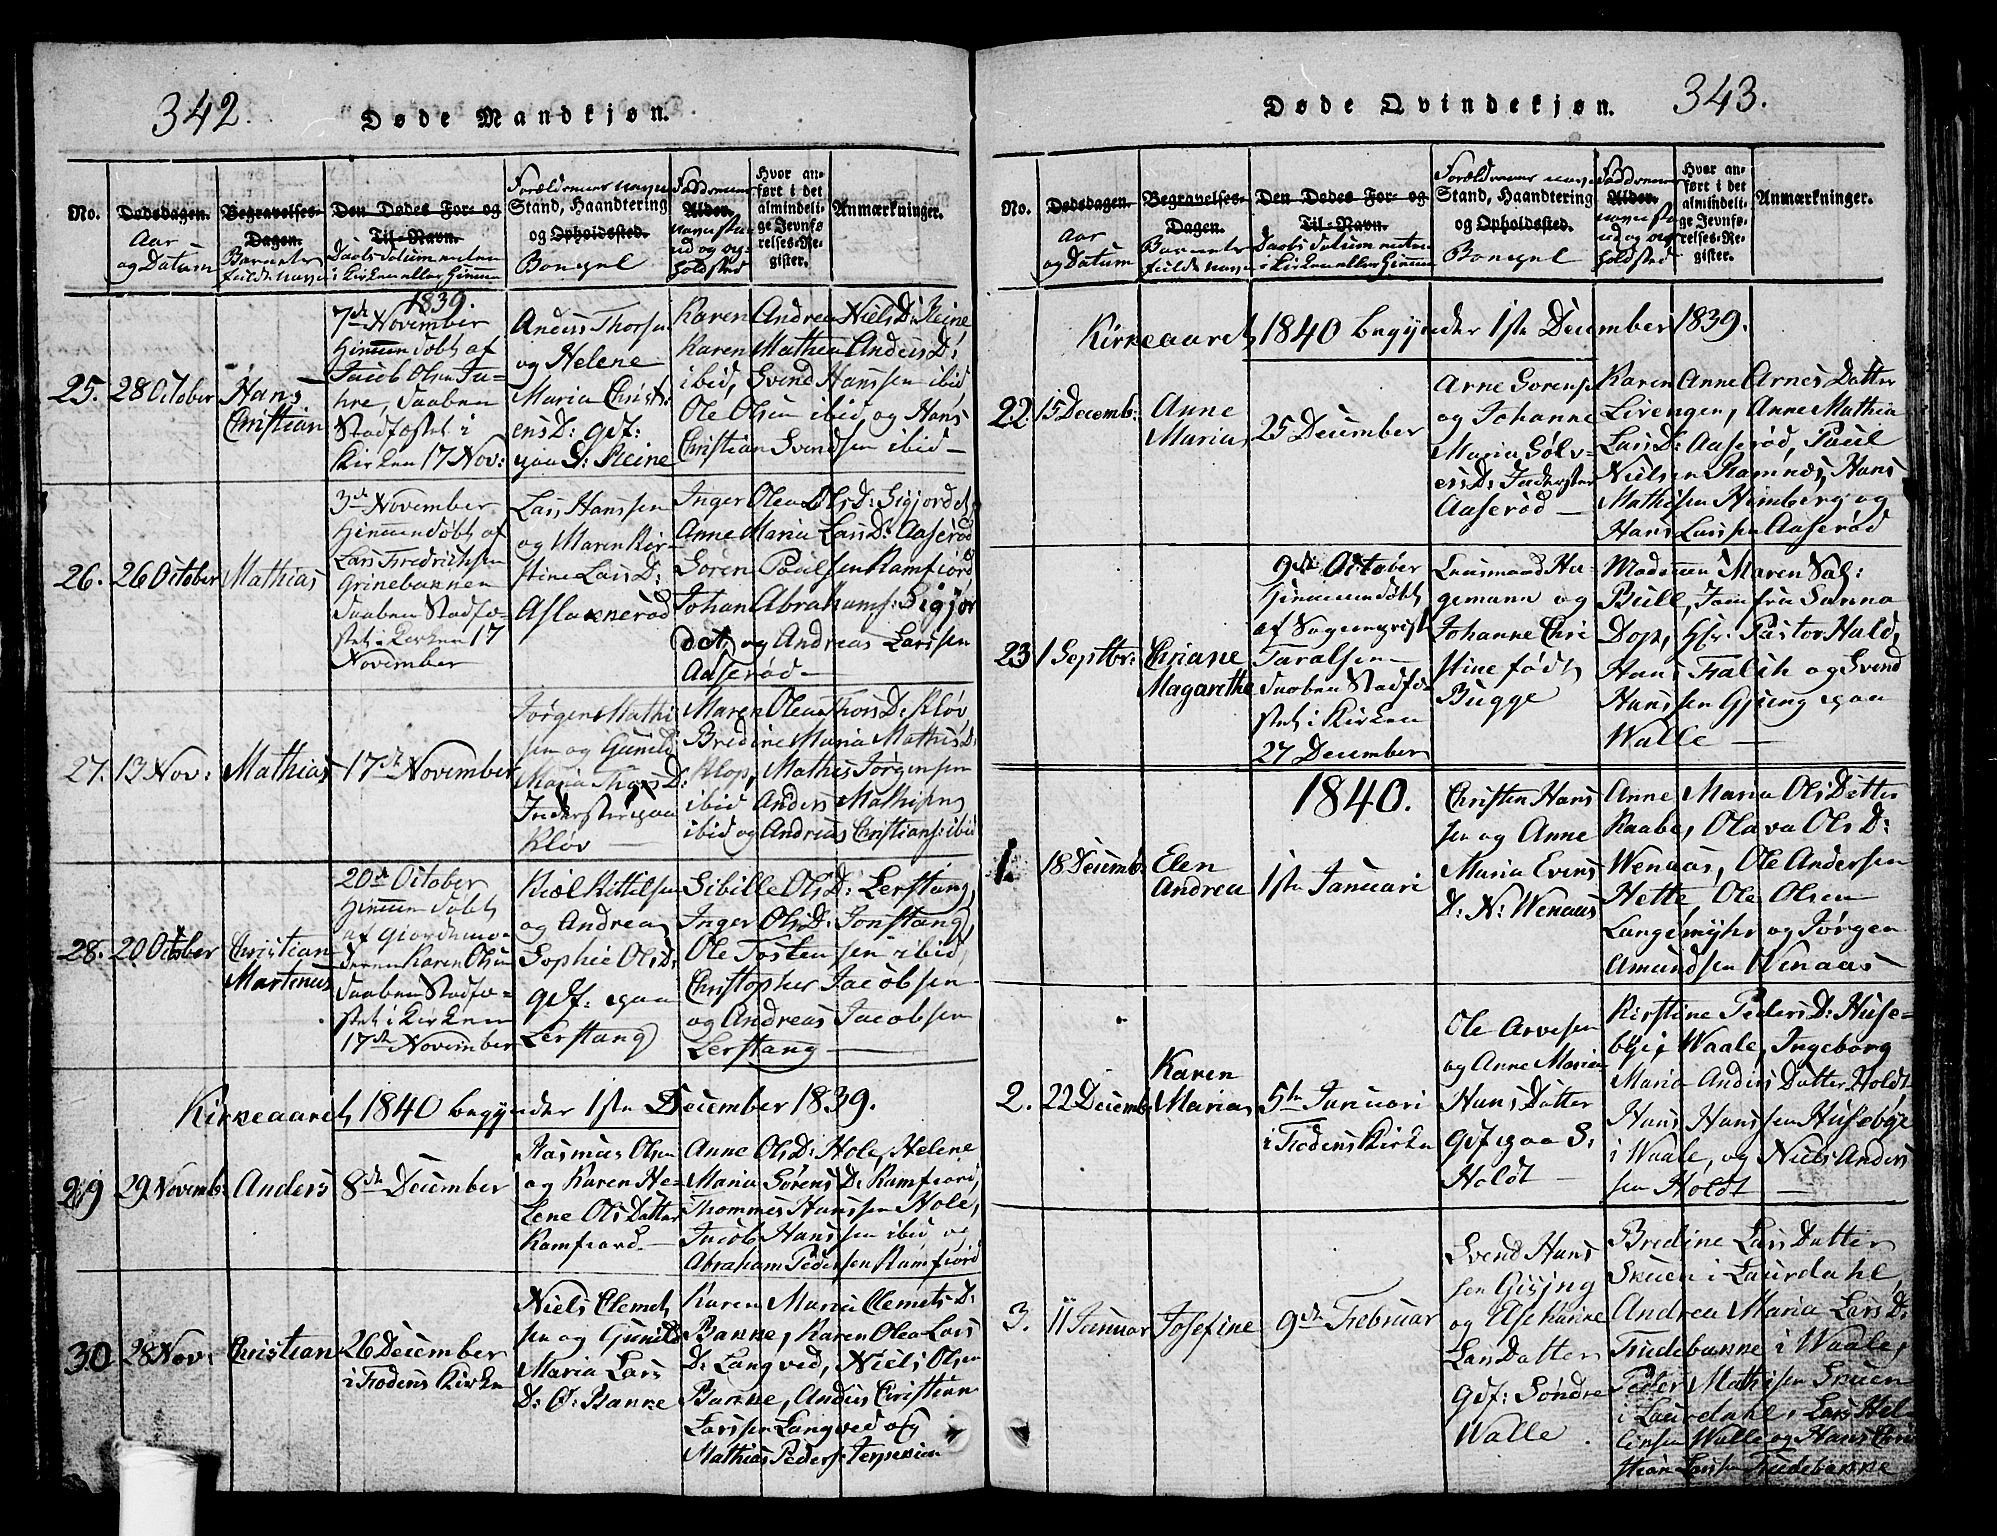 342.
Døde Mandkjøn.
No.
Dødsdagen.
Aar
og Datum
Begravelses-
Dagen.
Barnets
fulde navn
Den Dødes For- og
Til-Navn.
Daabs Datum enten
i Kirken eller Hjemme
Forældrenes navne
Stand, Haandtering
og Opholdssted.
Bopæl
Faddernes
Alder.
navne sta
nd og op-
holdsted
Hvor an-
ført i det
almindeli-
ge Jevnfø-
relses-Re-
gister.
Anmærkninger.
25.
28 October
Hans
Christian
1839.
7de November
hjemmedøbt af
Jacob Olsen
Daaben
Stadfæstet i
Kirken 17 Nov:
Anders Thorsen
og Helene
Maria Christ:
ensD: gdf:
paa S: Reine
Karen Andrea NielsD: Reine
Karen Mathea AndersD:
ibid, Svend Hanssen ibid
Ole Olsen ibid og Hans
Christian Svendsen ibid –
26.
26 October
Mathias
3de November
hjemmedøbt af
Lars Fredrichsen
Grinebakken
Daaben Stadfæ-
stet i Kirken 17
November
Lars Hanssen
og Maren Kir-
stine LarsD:
Aslakserød
Inger Olea OlsD: Sigjordet
Anne Maria LarsD: Aaserød
Søren Poulsen Ramfjord
Johan Abrahams: Sigjor
det og Andreas Larssen
Aaserød –
27.
13 Nov:
Mathias
17de November
Jørgen Mathi
sen og Gunild
Maria ThorsD:
Inderster paa
Kløv –
Maren Olea ThorsD: Kløv
Bredine Maria MathisD:
Kløv, Mathis Jørgensen
ibid Anders Mathisen
ibid og Andreas Christians: ibid
28.
20 October
Christian
Martinus
20de October
hjemmedøbt
af Giordemo-
deren Karen Olsen
Daaben Stadfæ-
stet i Kirken
17de November
Kiøl Kittilsen
og Andrea
Sophie OlsD:
gdf: paa
Lerstang
Sibille OlsD: Lerstang,
Inger OlsD: Jonstang,
Ole Torstensen ibid,
Christopher Jacobsen
og Andreas Jacobsen
Lerstang –
Kirkeaaret 1840 begynder 1ste December 1839.
29
29 Novemb:
Anders
8de December
Rasmus Olsen
og Karen He-
lene OlsDatter
Ramfiord –
Anne OlsD: Hole, Helene
Maria SørensD: Ramfiord,
Thommes Hanssen Hole,
Jacob Hanssen ibid og
Abraham Pedersen Ramfiord
30
28 Nov:
Christian
26 December
i Fodens Kirke
Niels Clemet
sen og Gunild
Maria Lars
D: Ø: Bakke
Karen Maria ClemetsD:
Bakke, Karen Olea Lars
D: Langved, Niels Olsen
Bakke, Anders Christian
Larssen Langved og
Mathias Peders:
343.
Døde Qvindekjøn.
No.
Dødsdagen.
Aar
og Datum
Begravelses-
Dagen.
Barnets
fulde navn
Den Dødes For- og
Til-Navn.
Daabs Datum enten
i Kirken eller Hjemme
Forældrenes navne
Stand, Haandtering
og Opholdssted.
Bopæl
Faddernes
Alder.
navne sta
nd og op-
holdsted
Hvor an-
ført i det
almindeli-
ge Jevnfø-
relses-Re-
gister.
Anmærkninger.
Kirkeaaret 1840 begynder 1ste December 1839.
22.
15 Decemb:
Anne
Maria
25 December
Arne Sørens:
og Johanne
Maria Sølv-
esD: Inderster
Aaserød –
Karen Anne ArnesDatter
Lirengen, Anne Mathia
LarsD: Aaserød, Poul
Nielsen Ramnæs, Hans
Mathisen Himberg og
Hans Larssen Aaserød
23
1 Septbr:
Chriane
Magarethe
9de October
hjemmedøbt
af
Taralsen
Daaben Stadfæ-
stet i Kirken
27 December
Lensmand Ha-
gemann og
Johanne Chri
stine født
Bugge
Madamme Maren Sal:
Bull, Jomfru Sanna
Dop, Hr. Pastor Hald,
Hans Falch og Svend
Hanssen paa
Walle –
1840.
1.
18 Decemb:
Elen
Andrea
1ste Januari
Christen Hans
sen og Anne
Maria Evens
D: N: Wenaas
Anne Maria OlsDatter
Raabe, Olava OlsD:
Wenaas, Ole Andersen
Hette, Ole Olsen
Langemyhr og Jørgen
Amundsen Wenaas –
2.
22 Decemb:
Karen
Maria
5te Januari
i Fodens Kirke
Ole Arvesen
og Anne Maria
HansDatter
Gdf paa S:
Holdt –
Kirstine PedersD: Huse-
bye, Waale, Ingeborg
Maria AndersDatter Holdt
Hans Hanssen Husebye
i Waale, og Niels Anders
sen Holdt –
3.
11 Januar
Josefine
9de Februar
Svend Hans
sen
og Else Karine
LarsDatter
Gdf: Søndre
Walle
Bredine LarsDatter
Skuen i Laurdahl,
Andrea Maria LarsD:
Trudebakke i Waale,
Peder Mathisen Skuen
i Laurdahl, Lars Kel-
lensen Walle og Hans Chri
stian Larssen Trudebakke